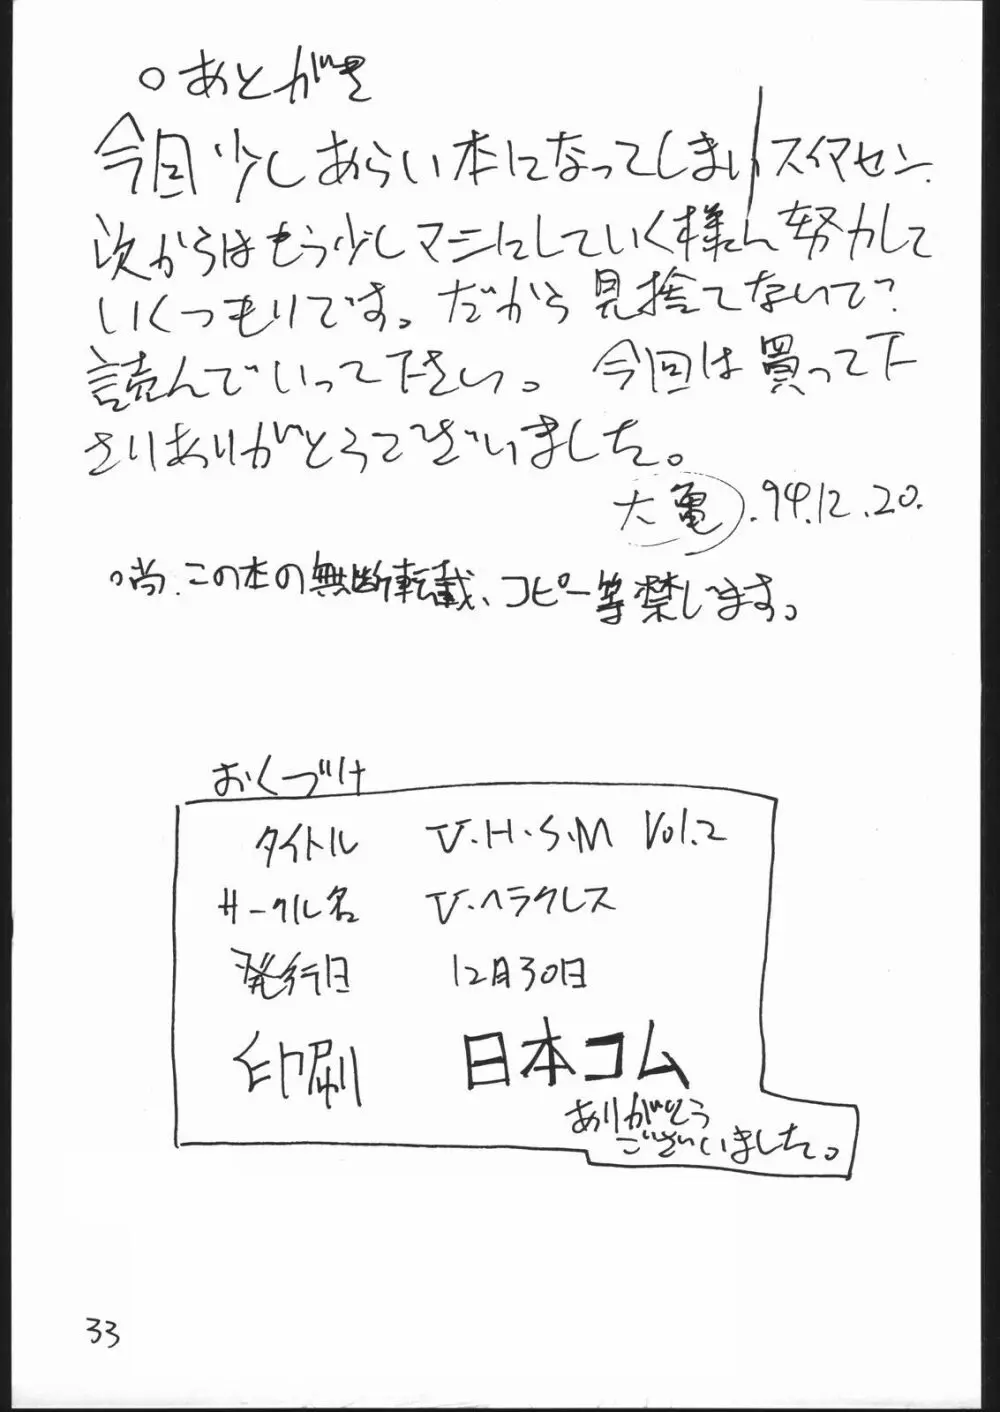 ○あとがき
今回少しあらい本になってしまいスイマセン.
次からはもう少しマシにしていく様に努力して
いくつもりです。だから見捨てないで?
読んでいって下さい。 今回は買って下
さりありがとうございました。
大亀. 94.12.20.
○尚、この本の無断転載、コピー等禁じます。
おくづけ
タイトル V・H・S・M Vol.2
サークル名 V・ヘラクレス
発行日 12月30日
印刷 日本コム
ありがとう
ございました。
33